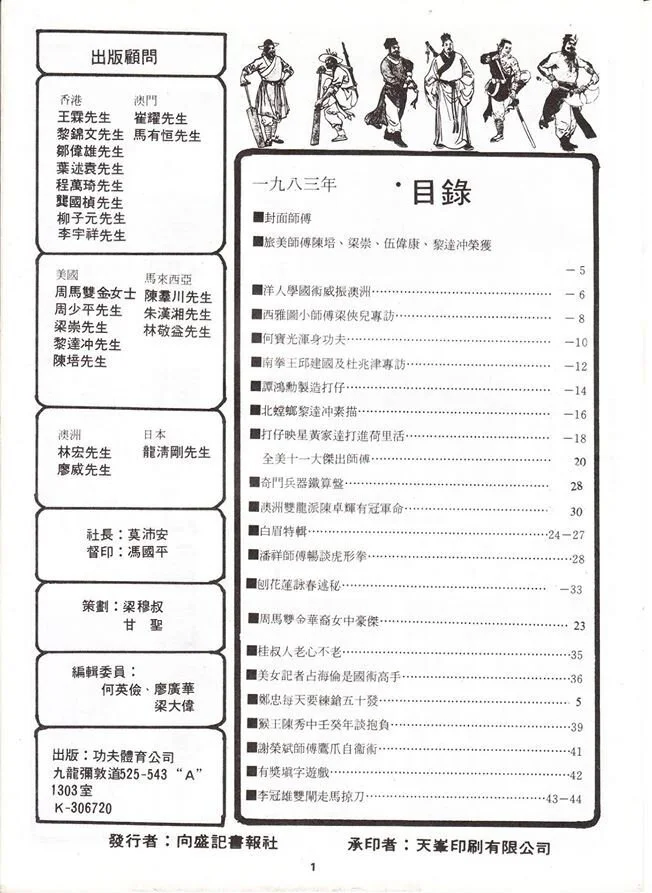 出版顧問
香港 澳門
王霖先生 崔耀先生
黎錦文先生 馬有恒先生
鄒偉雄先生
葉述袁先生
程萬琦先生
龔國楨先生
柳子元先生
李宇祥先生
美國 馬來西亞
周馬雙金女士 陳羣川先生
周少平先生 朱漢湘先生
梁崇先生 林敬益先生
黎達冲先生
陳培先生
澳洲 日本
林宏先生 龍清剛先生
廖威先生
社長：莫沛安
督印：馮國平
策劃：梁穆叔
甘 聖
編輯委員：
何英儉、廖廣華
梁大偉
出版：功夫體育公司
九龍彌敦道525-543“A”
1303室
K-306720
一九八三年 ·目錄
■封面師傅
■旅美師傅陳培、梁崇、伍偉康、黎達冲榮獲
－5
■洋人學國術威振澳洲…－6
■西雅圖小師傅梁俠兒專訪…－8
■何寶光渾身功夫…－10
■南拳王邱建國及杜兆津專訪…－12
■譚鴻勳製造打仔…－14
■北螳螂黎達冲素描…－16
■打仔映星黃家達打進荷里活…－18
全美十一大傑出師傅 20
■奇門兵器鐵算盤 28
■澳洲雙龍派陳卓輝有冠軍命 30
■白眉特輯…24－27
■潘祥師傅暢談虎形拳…28
■刨花蓮詠春述秘…－33
■周馬雙金華裔女中豪傑… 23
■桂叔人老心不老…35
■美女記者占海倫是國術高手…36
■鄭忠每天要練鎗五十發… 5
■猴王陳秀中壬癸年談抱負…39
■謝榮斌師傅鷹爪自衞術…41
■有獎填字遊戲…42
■李冠雄雙闸走馬掠刀…43－44
發行者：向盛記書報社 承印者：天峯印刷有限公司
1